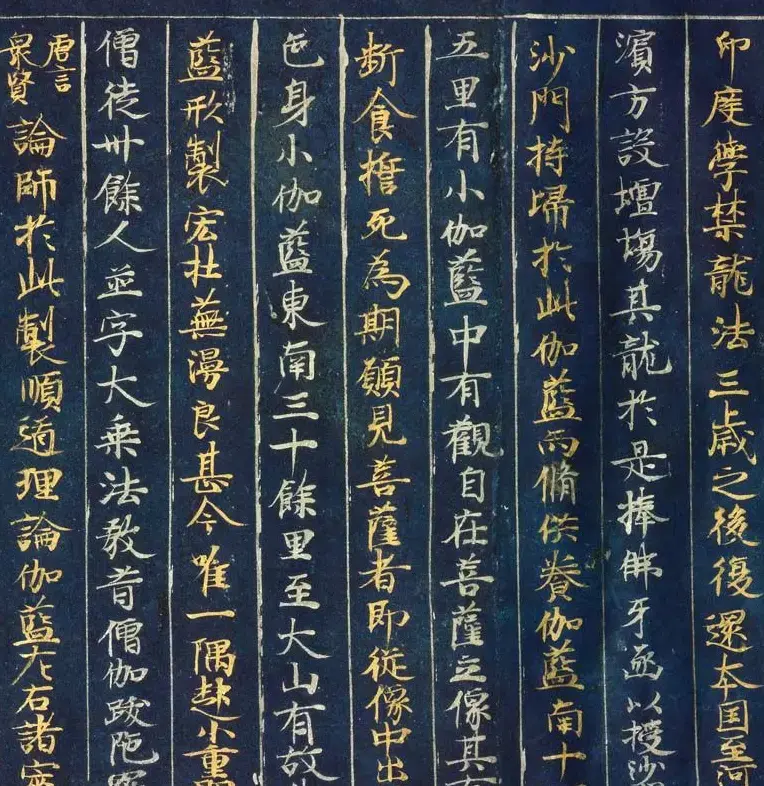 印度學禁龍法三歲之後復還本国至河
濱方設壇塲其龍於是捧佛牙函以授沙
沙門持埽於此伽藍而脩供養伽藍南十
五里有小伽藍中有觀自在菩薩立像其有
断食擔死為期願見菩薩者即從像中出
色身小伽藍東南三十餘里至大山有故
藍形製宏壯蕪漫良甚今唯一隅起小重
僧徒卅餘人並字大乗法教昔僧伽跋陁
唐言
衆賢
論師於此製順道理論伽藍左右諸